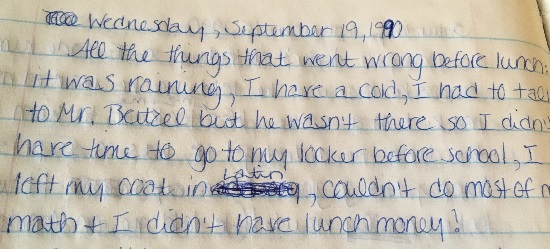 Wednesday, September 19, 1990
All the things that went wrong before lunch:
it was raining, I have a cold, I had to
to Mr. Beitzel but he wasn't there so I didn't
have time to go to my locker before school, I
Latin
left my coat in , couldn't do most of
math + I didn't have lunch money!